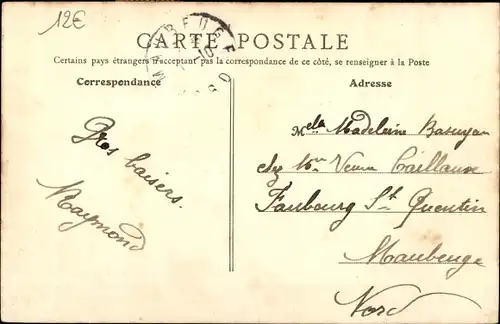 12€
CARTE POSTALE
Certains pays étrangers n'acceptant pas la correspondance de ce côté, se renseigner à la Poste
Correspondance
Adresse
Gros baisers.
Raymond
Melle Madeleine
chez Mme Veuve Caillaux
Faubourg St Quentin
Maubeuge
Nord